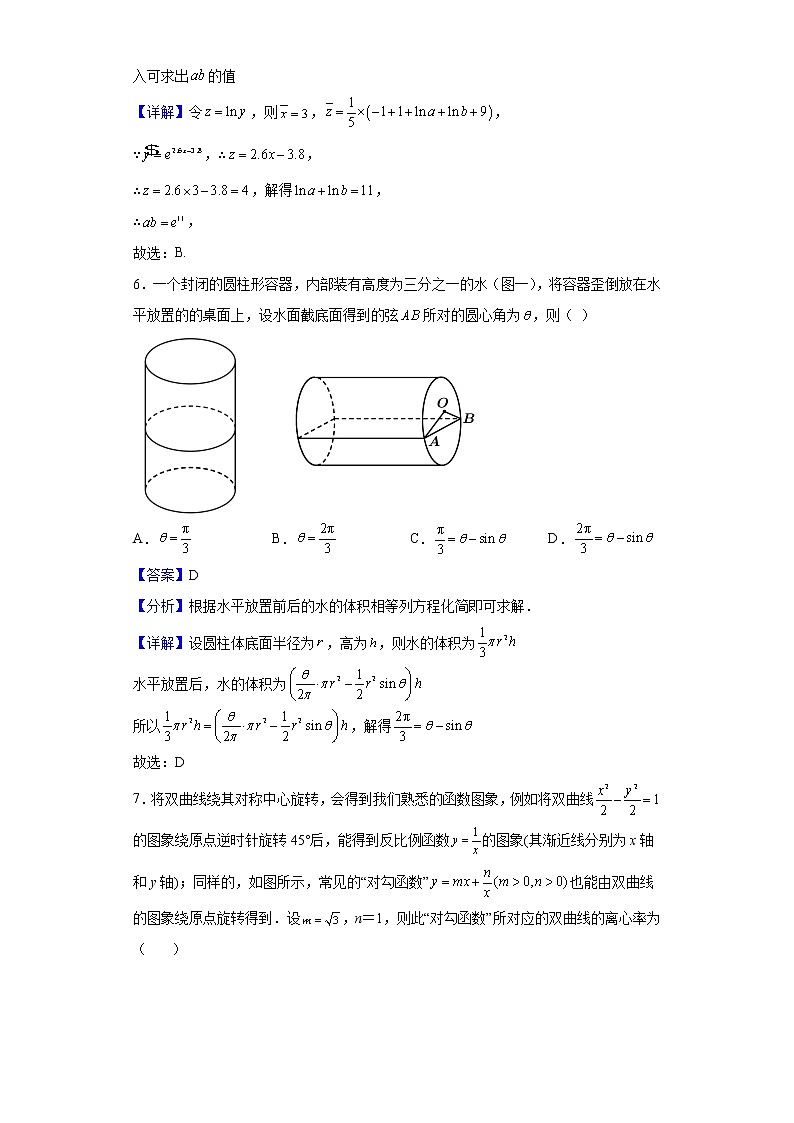 入可求出ab的值
【详解】令z=lny，则x̄=3，z̄=1/5×(−1+1+lna+lnb+9)，
∵ŷ=e^(2.6x−3.8)，∴z=2.6x−3.8，
∴z=2.6×3−3.8=4，解得lna+lnb=11，
∴ab=e^11，
故选：B.
6．一个封闭的圆柱形容器，内部装有高度为三分之一的水（图一），将容器歪倒放在水
平放置的的桌面上，设水面截底面得到的弦AB所对的圆心角为θ，则（ ）
O
B
A
A．θ=π/3 B．θ=2π/3 C．π/3=θ−sinθ D．2π/3=θ−sinθ
【答案】D
【分析】根据水平放置前后的水的体积相等列方程化简即可求解．
【详解】设圆柱体底面半径为r，高为h，则水的体积为1/3πr²h
水平放置后，水的体积为(θ/2π·πr²−1/2r²sinθ)h
所以1/3πr²h=(θ/2π·πr²−1/2r²sinθ)h，解得2π/3=θ−sinθ
故选：D
7．将双曲线绕其对称中心旋转，会得到我们熟悉的函数图象，例如将双曲线x²/2−y²/2=1
的图象绕原点逆时针旋转45°后，能得到反比例函数y=1/x的图象(其渐近线分别为x轴
和y轴)；同样的，如图所示，常见的“对勾函数”y=mx+n/x(m>0,n>0)也能由双曲线
的图象绕原点旋转得到．设m=√3，n＝1，则此“对勾函数”所对应的双曲线的离心率为
（ ）